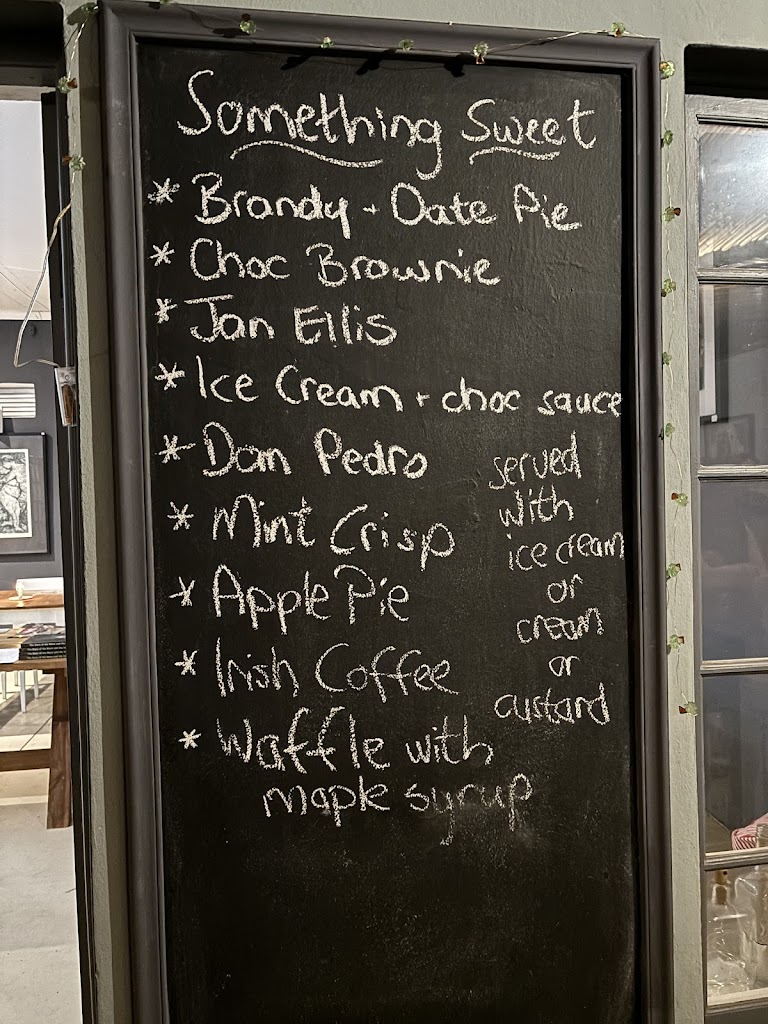 Something Sweet
* Brandy + Date Pie
* Choc Brownie
* Jan Ellis
* Ice Cream + choc sauce
* Dom Pedro
* Mint Crisp
* Apple Pie
* Irish Coffee
* Waffle with
maple syrup
served
with
ice cream
or
cream
or
custard